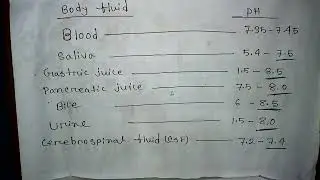 Body fluid PH
Blood 7.35 - 7.45
Saliva 5.4 - 7.5
Gastric juice 1.5 - 8.5
Pancreatic juice 7.5 - 8.0
Bile 6 - 8.5
Urine 1.5 - 8.0
Cerebrospinal fluid (CSF) 7.2 - 7.4